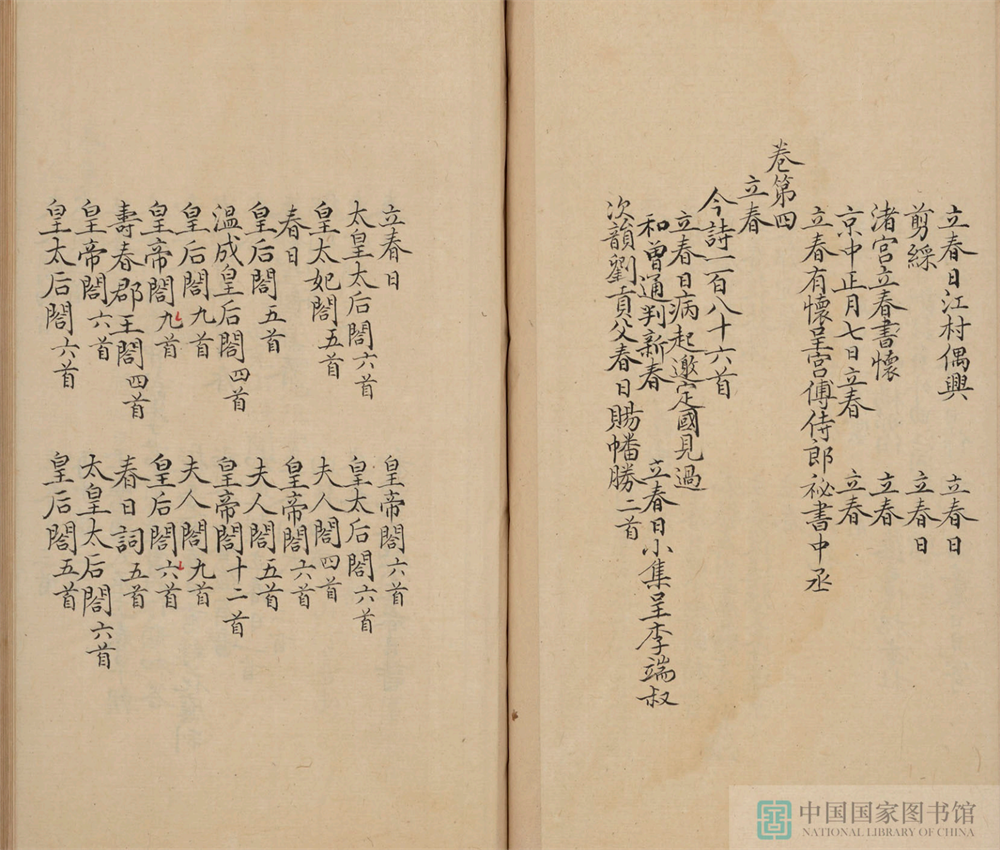 立春日江村偶興　立春日
剪綵　立春日
渚宮立春書懷　立春
京中正月七日立春　立春
立春有懷呈宮傅侍郎祕書中丞
卷第四
立春
今詩一百八十六首
立春日病起邀定國見過
和曾通判新春　立春日小集呈李端叔
次韻劉貢父春日賜幡勝二首
立春日　皇帝閤六首
太皇太后閤六首　皇太后閤六首
皇太妃閤五首　夫人閤四首
春日　皇帝閤六首
皇后閤五首　夫人閤五首
温成皇后閤四首　皇帝閤十二首
皇后閤九首　夫人閤九首
皇帝閤九首　皇后閤六首
壽春郡王閤四首　春日詞五首
皇帝閤六首　太皇太后閤六首
皇太后閤六首　皇后閤五首
中国国家图书馆
NATIONAL LIBRARY OF CHINA